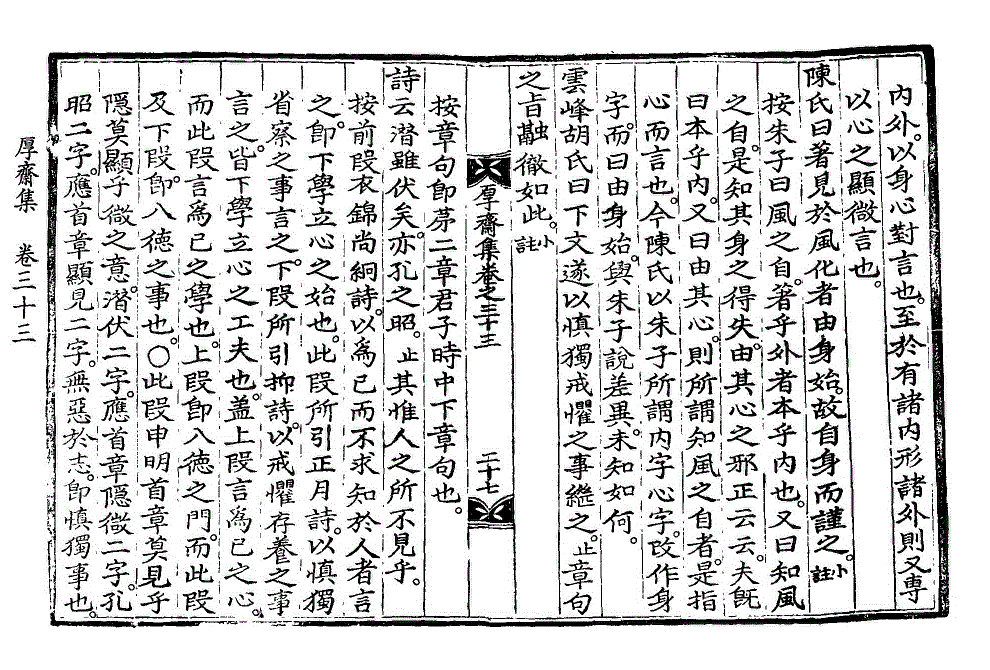 內外。以身心對言也。至於有諸內形諸外則又專
以心之顯微言也。
陳氏曰著見於風化者由身始。故自身而謹之。小註
按朱子曰風之自。著乎外者本乎內也。又曰知風
之自。是知其身之得失。由其心之邪正云云。夫旣
曰本乎內。又曰由其心。則所謂知風之自者。是指
心而言也。今陳氏以朱子所謂內字心字。改作身
字。而曰由身始。與朱子說差異。未知如何。
雲峰胡氏曰下文遂以愼獨戒懼之事繼之。止章句
之旨融徹如此。小註
厚齋集卷之三十三
二十七
按章句卽苐二章君子時中下章句也。
詩云潛雖伏矣。亦孔之昭。止其惟人之所不見乎。
按前段衣錦尙絅詩。以爲已而不求知於人者言
之。卽下學立心之始也。此段所引正月詩。以愼獨
省察之事言之。下段所引抑詩。以戒懼存養之事
言之。皆下學立心之工夫也。盖上段言爲已之心。
而此段言爲已之學也。上段卽入德之門。而此段
及下段。卽入德之事也。○此段申明首章莫見乎
隱莫顯乎微之意。潛伏二字。應首章隱微二字。孔
昭二字。應首章顯見二字。無惡於志。卽愼獨事也。
厚齋集 卷三十三